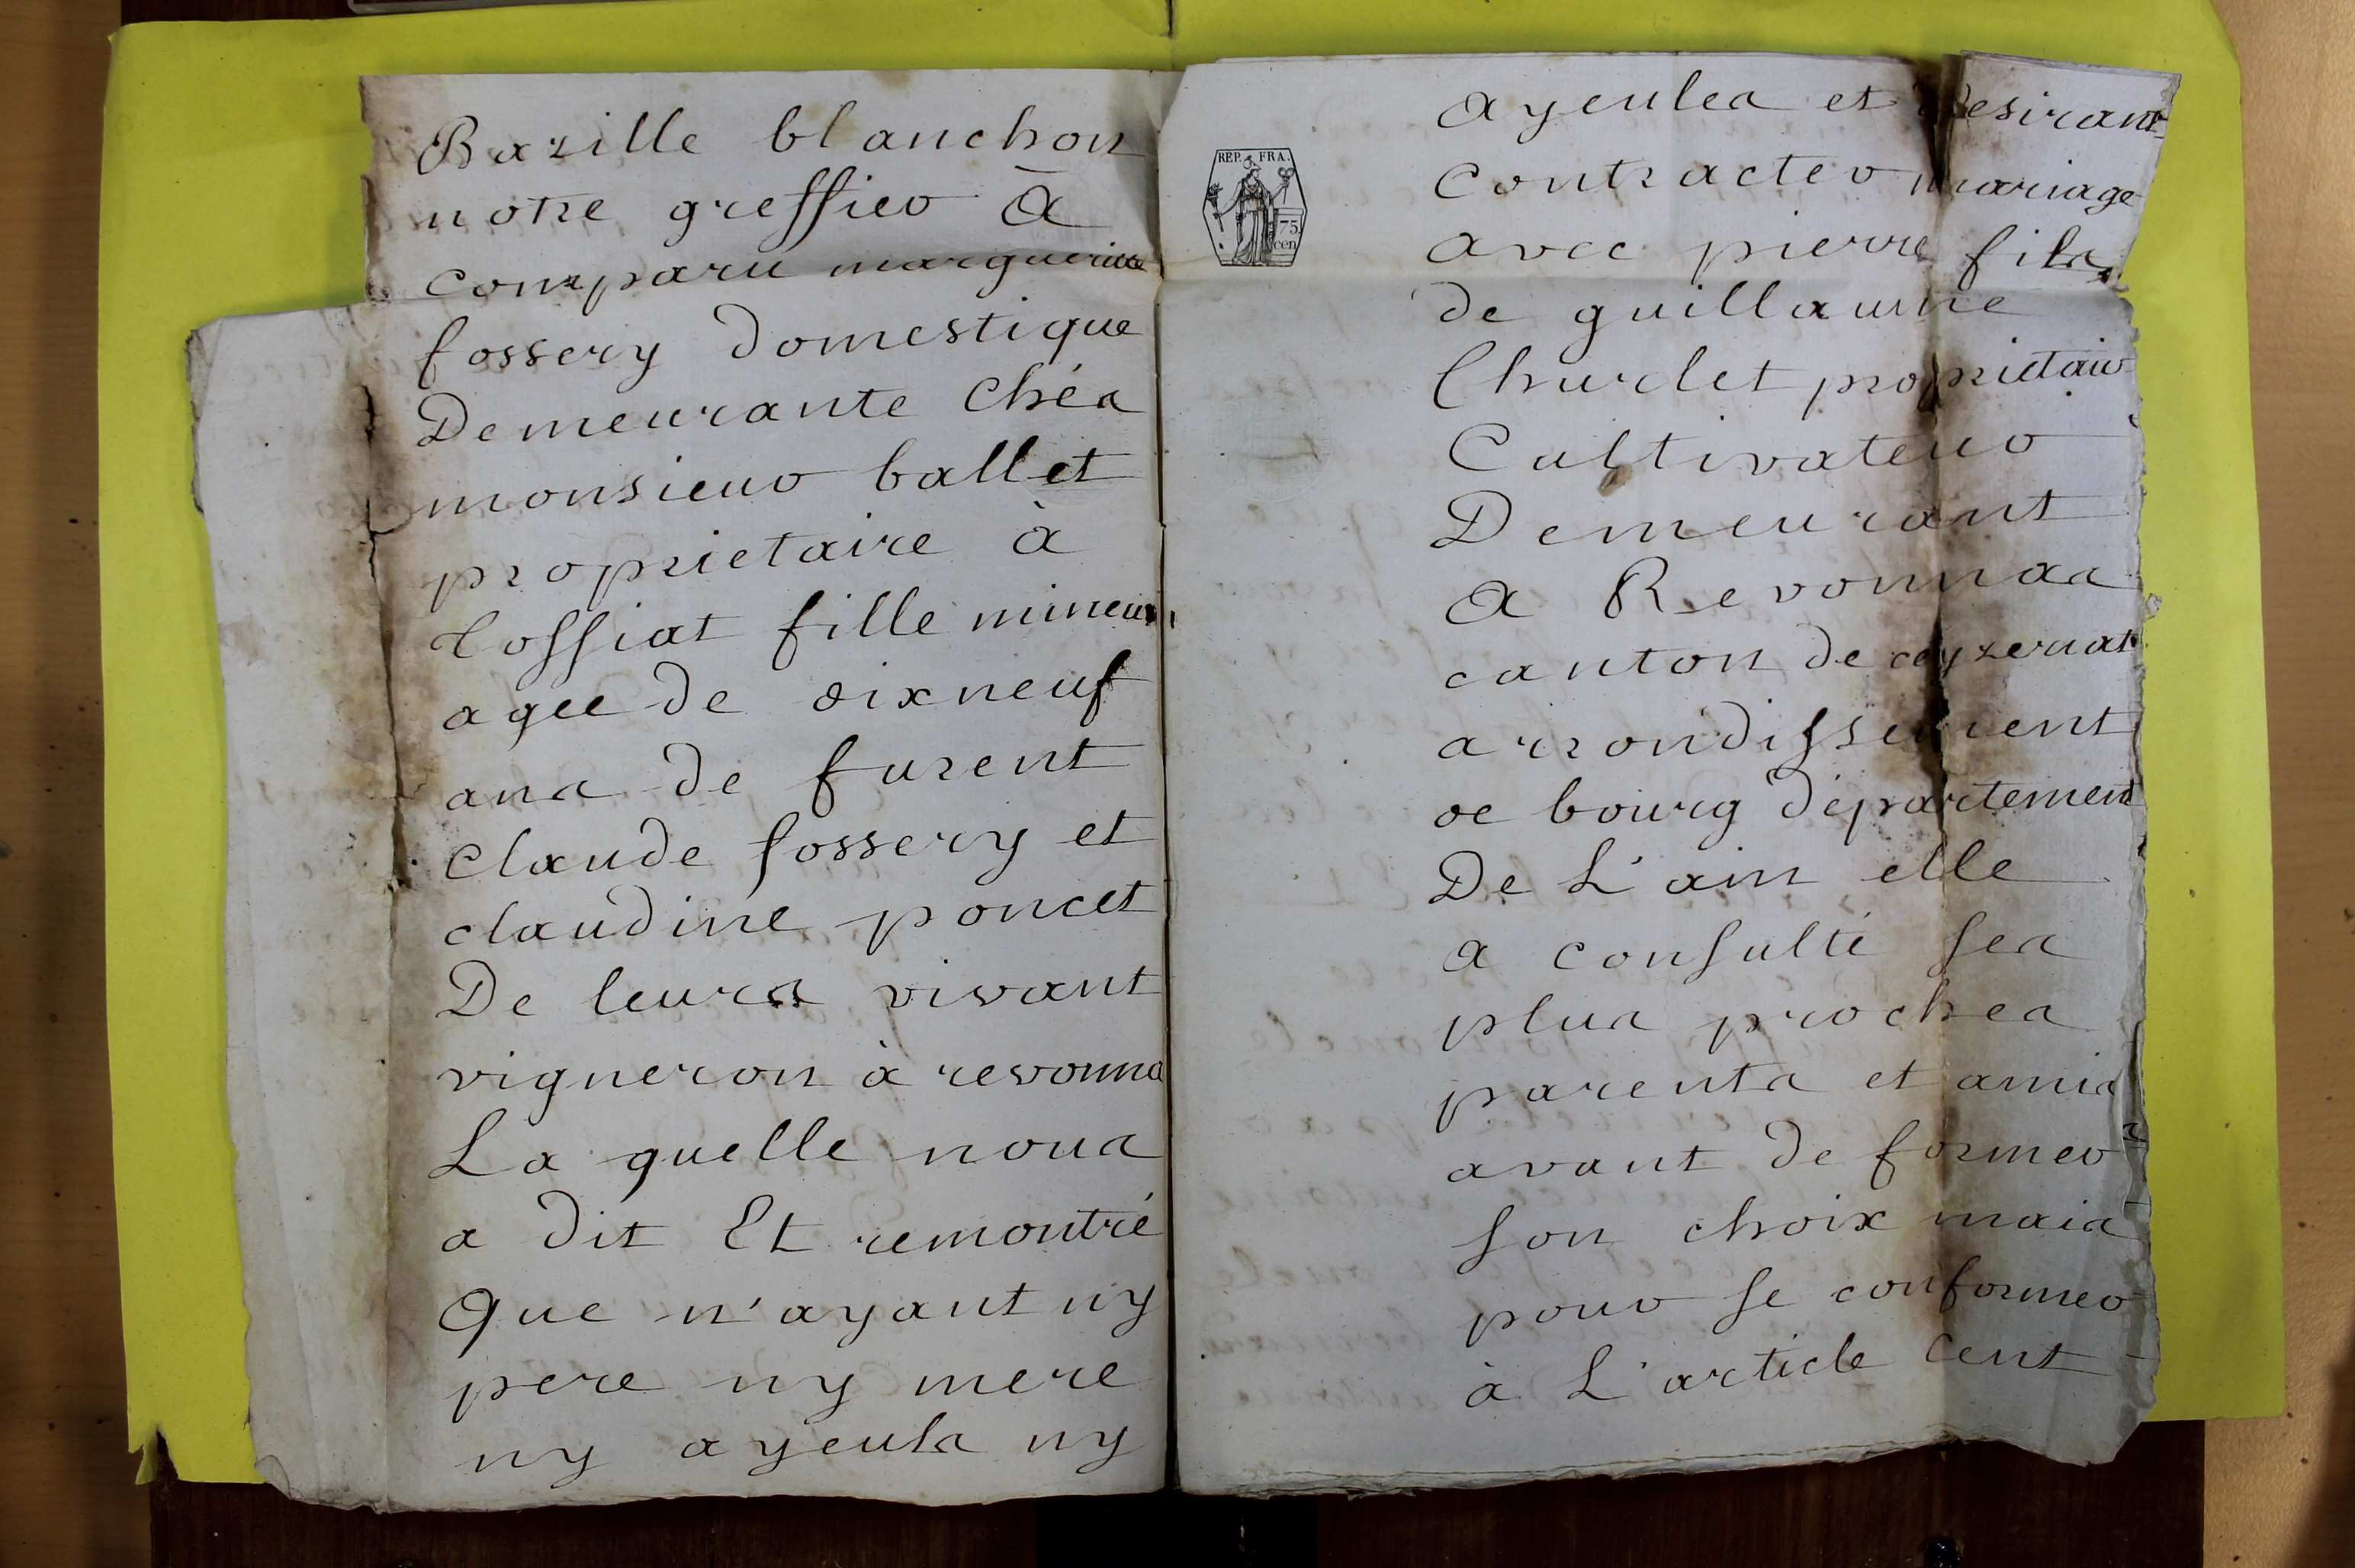 Bazille blanchon
notre greffier à
comparu margueritte
fossery domestique
Demeurante Chés
monsieur ballet
proprietaire à
Tossiat fille mineure
agee de dixneuf
ans de furent
Claude fossery et
claudine poncet
De leurs vivant
vigneron à revonna
La quelle nous
a dit Et remontré
Que n'ayant ny
pere ny mere
ny ayeuls ny
REP. FRA.
75
cen
ayeules et desirant
Contracter mariage
avec pierre fils
de guillaume
Churlet proprietaire
Cultivateur
Demeurant
A Revonnas
canton de ceyzeriat
arrondissement
de bourg departement
De L'ain elle
a consulté ses
plus proches
parents et amis
avant de former
son choix mais
pour se conformer
à L'article Cent